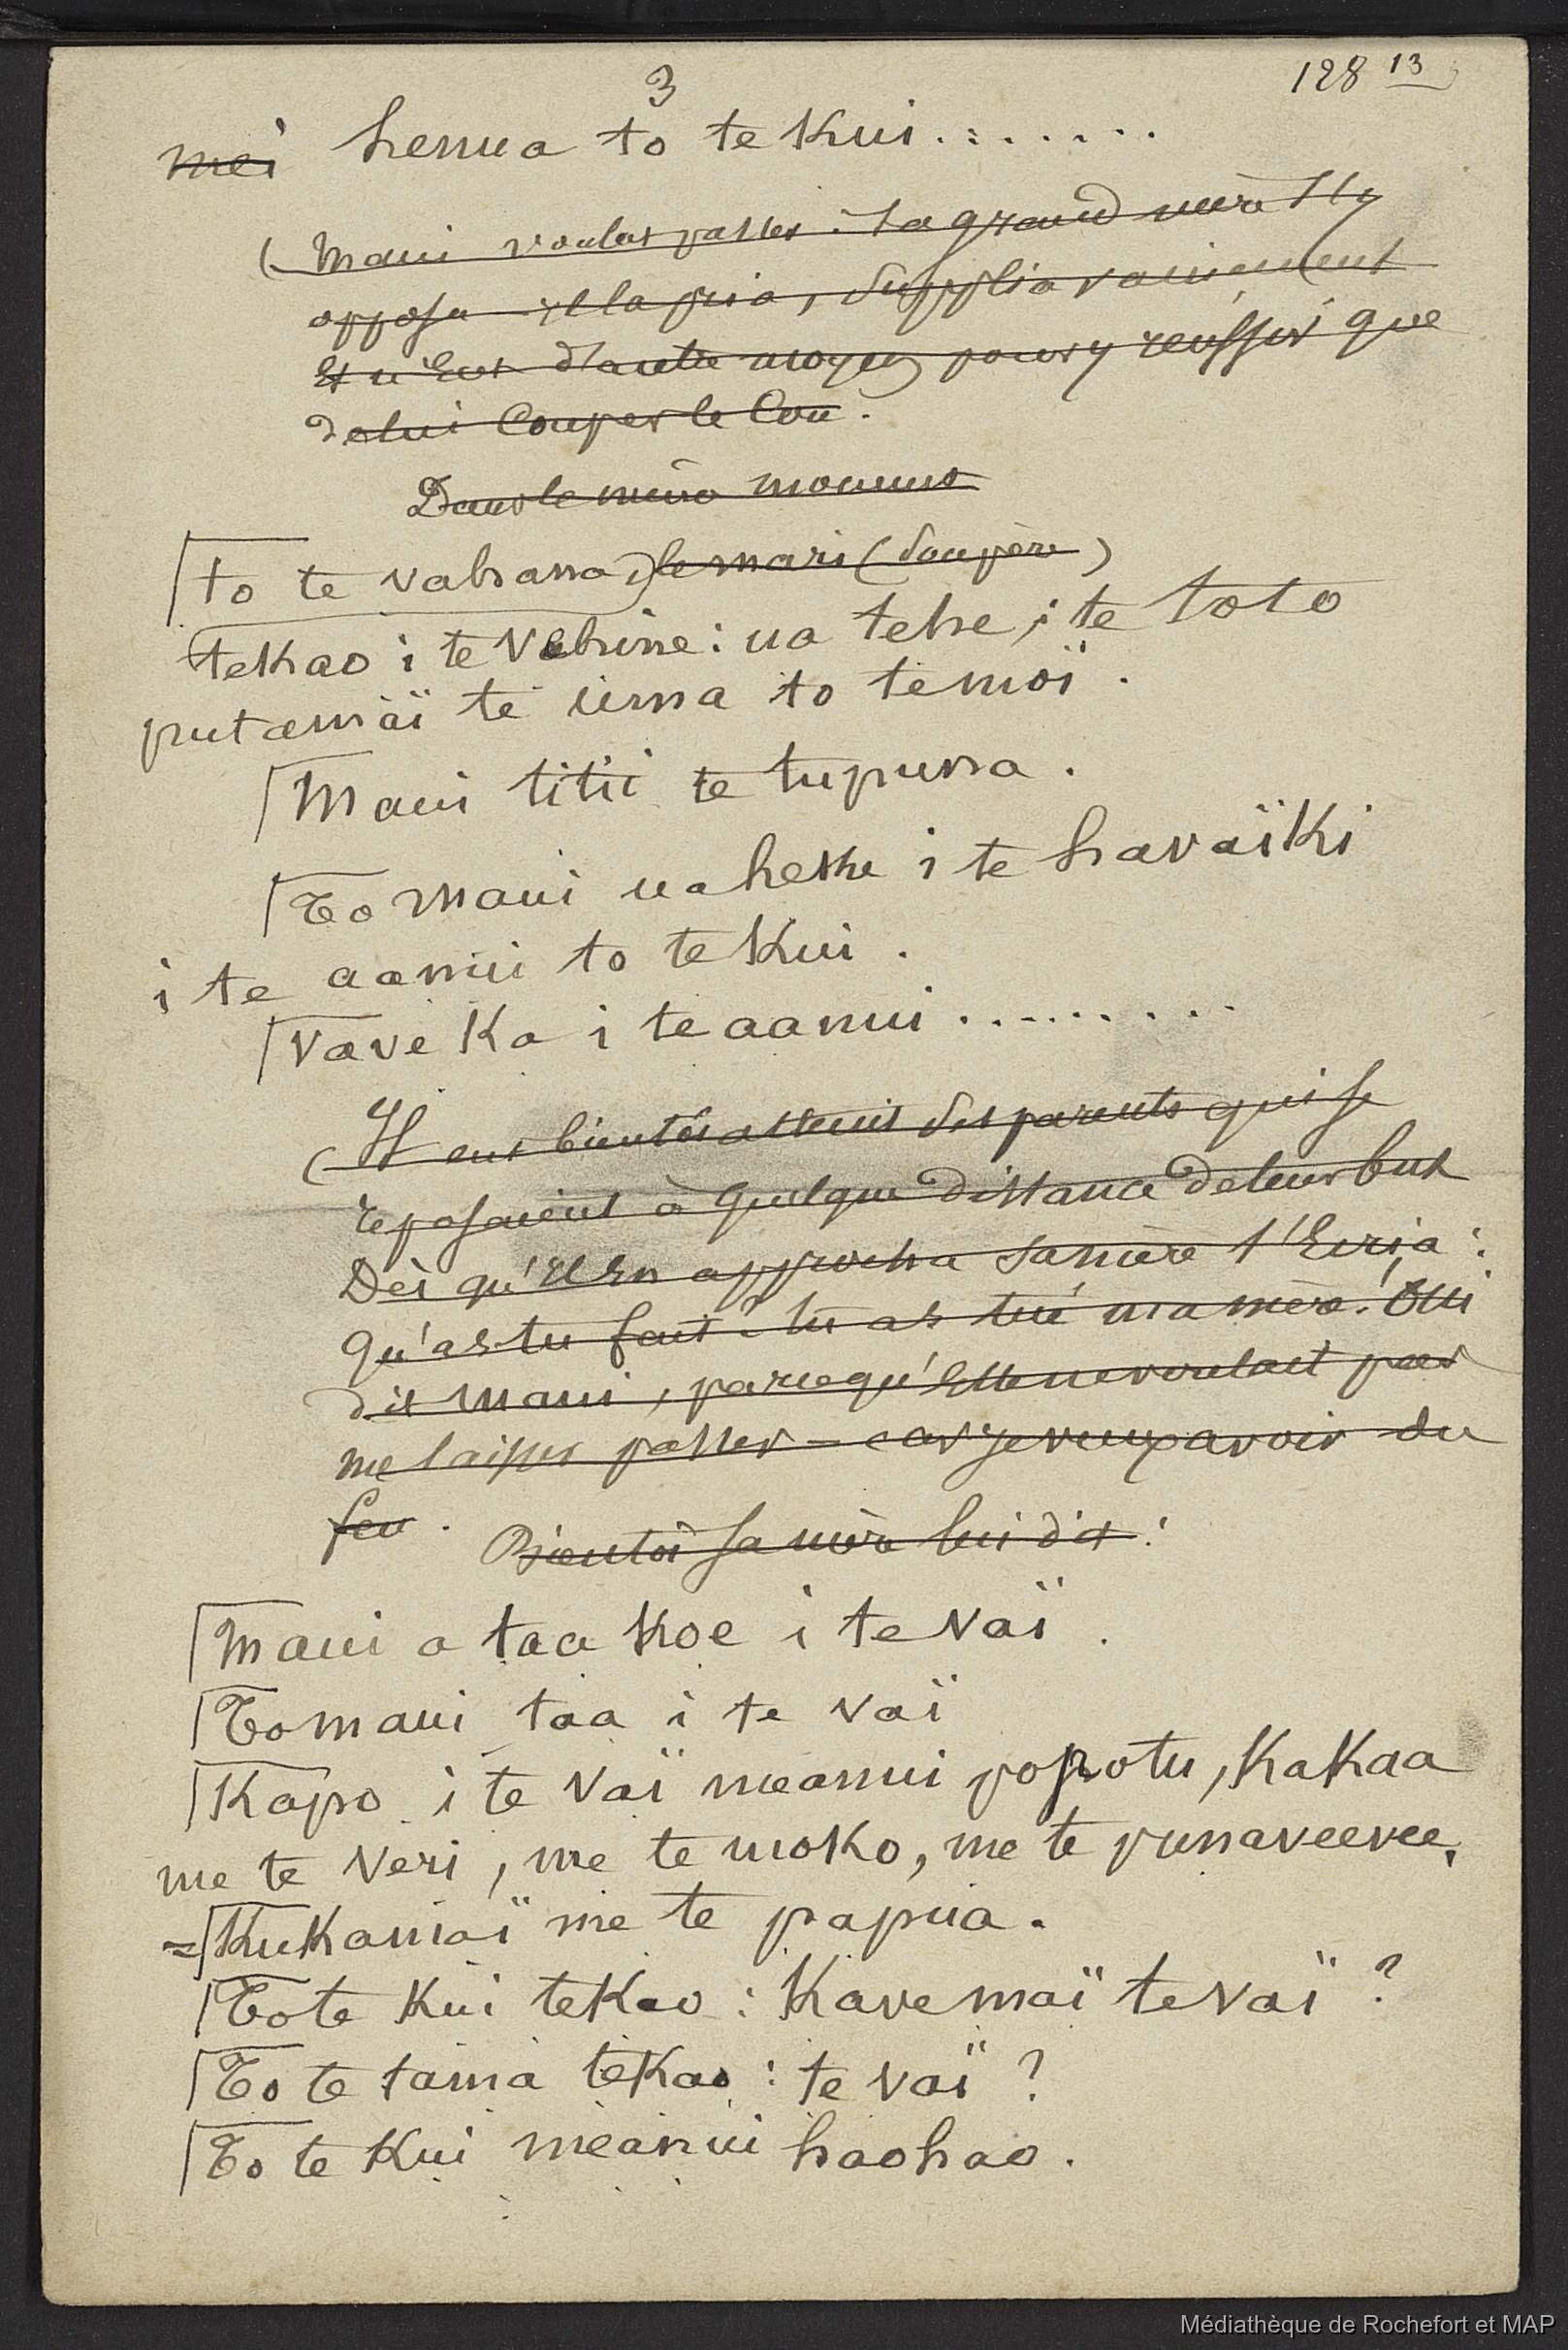 3
128 13
mei henua to te Kui.:.....
(Maui voulut passer. Sa grand mère s'y
opposa - il la pria, supplia vainement
Et n'eut d'autre moyen pour y réussir que
de lui Couper le Cou.
Dans le même moment
to te vahana, le mari (son père)
tekao i te Vehine: ua tehe i te toto
putamaï te uma to te moï.
Maui titii te tupuna.
To Maui ua heke i te havaïki
i te aamui to te Kui.
Vave Ka i te aamui.........
(Il eut bientôt atteint ses parents qui se
reposaient à quelque distance de leur but
Dès qu'il en approcha sa mère s'écria:
Qu'as-tu fait? tu as tué ma mère! Oui
dit Maui, parce qu'elle ne voulait pas
me laisser passer - car je veux avoir du
feu. Bientôt sa mère lui dit:
Maui a taa Koe i te Vaï.
To maui taa i te vaï
Kapo i te Vaï meanui popotu, Kakaa
me te Veri, me te moko, me te punaveevee,
=Kukamaï me te papua.
To te Kui teKao: Kave maï te vaï?
To te tama teKao: te vaï?
To te Kui meanui haohao.
Médiathèque de Rochefort et MAP